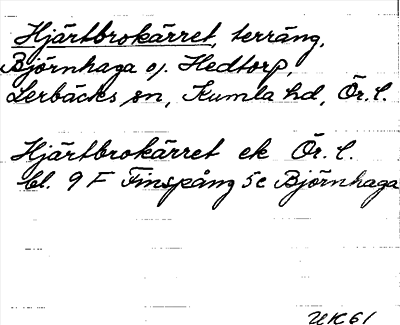 Hjärtbrokärret, terräng,
Björnhaga o. Hedtorp,
Lerbäcks sn, Kumla hd, Ör. l.
Hjärtbrokärret ek Ör. l.
bl. 9 F Finspång 5c Björnhaga
UK 61